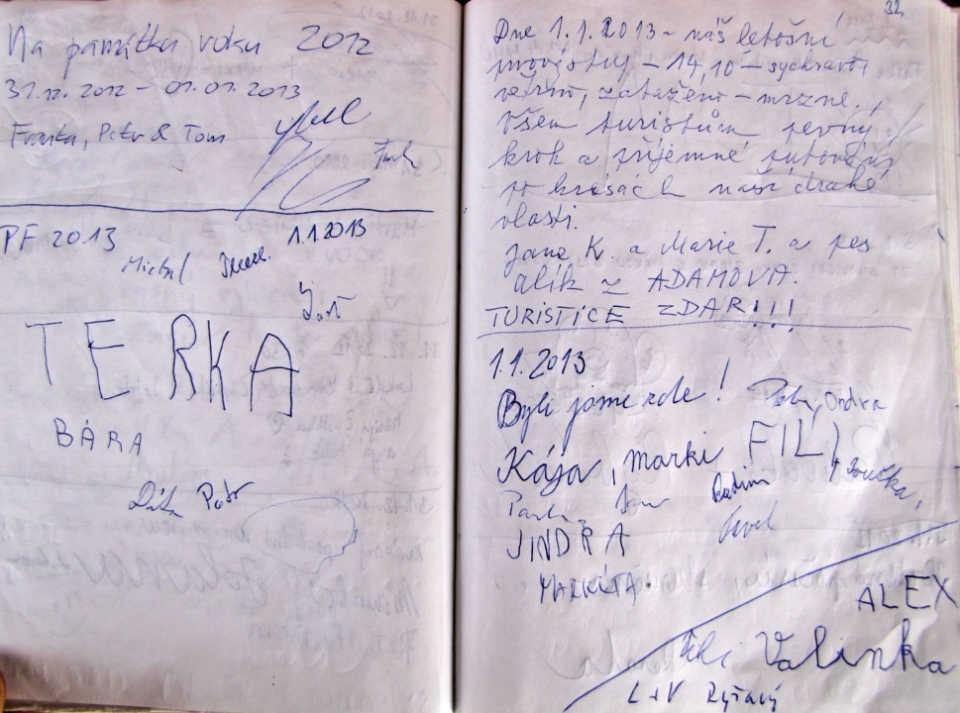 Na památku roku 2012
31.12.2012 - 01.01.2013
Franta, Petr & Tom
PF 2013
1.1.2013
Michal
TERKA
BÁRA
Petr
32
Dne 1.1.2013 - náš letošní
- 14,10 - sychravo,
zataženo - mrzne.
Všem turistům pevný
krok a příjemné putování
po krásách naší drahé
vlasti.
Jana K a Marie T. a pes
Alík z ADAMOVA.
TURISTICE ZDAR!!!
1.1.2013
Byli jsme zde!
Ondra
Kája, Marki FILI
Radim
Pavel
JINDRA
MARKÉTA
ALEX
Valinka
L+V